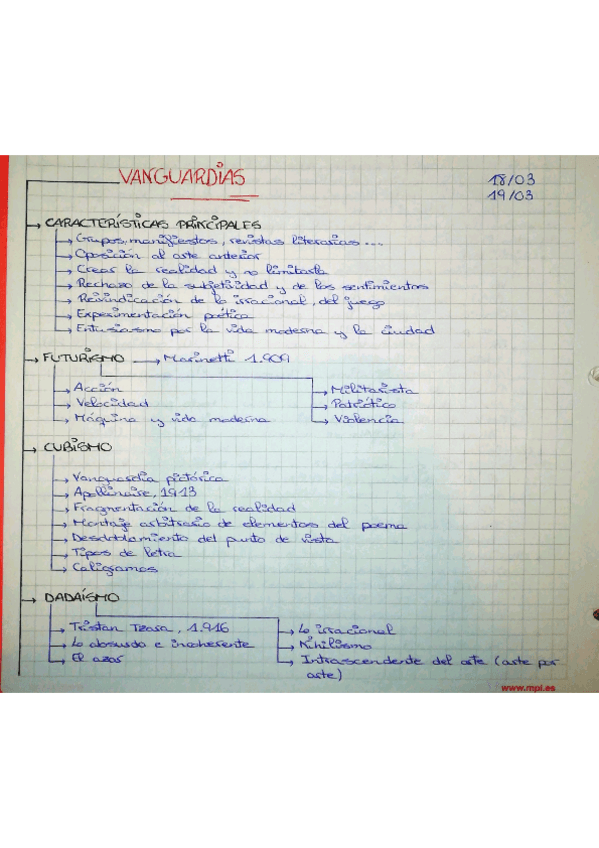 VANGUARDIAS
18/03
19/03
CARACTERÍSTICAS PRINCIPALES
Grupos, manifiestos, revistas literarias...
Oposición al arte anterior
Crear la realidad y no limitarla
Rechazo de la subjetividad y de los sentimientos
Reivindicación de lo irracional, del juego
Experimentación poética
Entusiasmo por la vida moderna y la ciudad
FUTURISMO → Marinetti 1.909
Acción
Velocidad
Máquina y vida moderna
Militarista
Patriótico
Violencia
CUBISMO
Vanguardia pictórica
Apollinaire, 1913
Fragmentación de la realidad
Montaje arbitrario de elementos del poema
Desdoblamiento del punto de vista
Tipos de letra
Caligramas
DADAÍSMO
Tristan Tzara, 1.916
Lo absurdo e incoherente
El azar
Lo irracional
Nihilismo
Intrascendente del arte (arte por
arte)
www.mpi.es